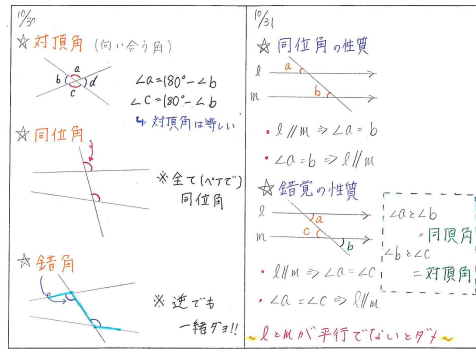 10/30
☆対頂角 (向い合う角)
a
b
c
d
∠a=180°-∠b
∠c=180°-∠b
↳ 対頂角は等しい
☆同位角
※全て(ペアで)
同位角
☆錯角
※ 逆でも
一緒ダヨ!!
10/31
☆同位角の性質
l
a
m
b
・l//m⇒∠a=b
・∠a=b⇒l//m
☆錯覚の性質
l
a
m
c
b
∠aと∠b
=同頂角
∠bと∠c
=対頂角
・l//m⇒∠a=∠c
・∠a=∠c⇒l//m
~lとmが平行でないとダメ~